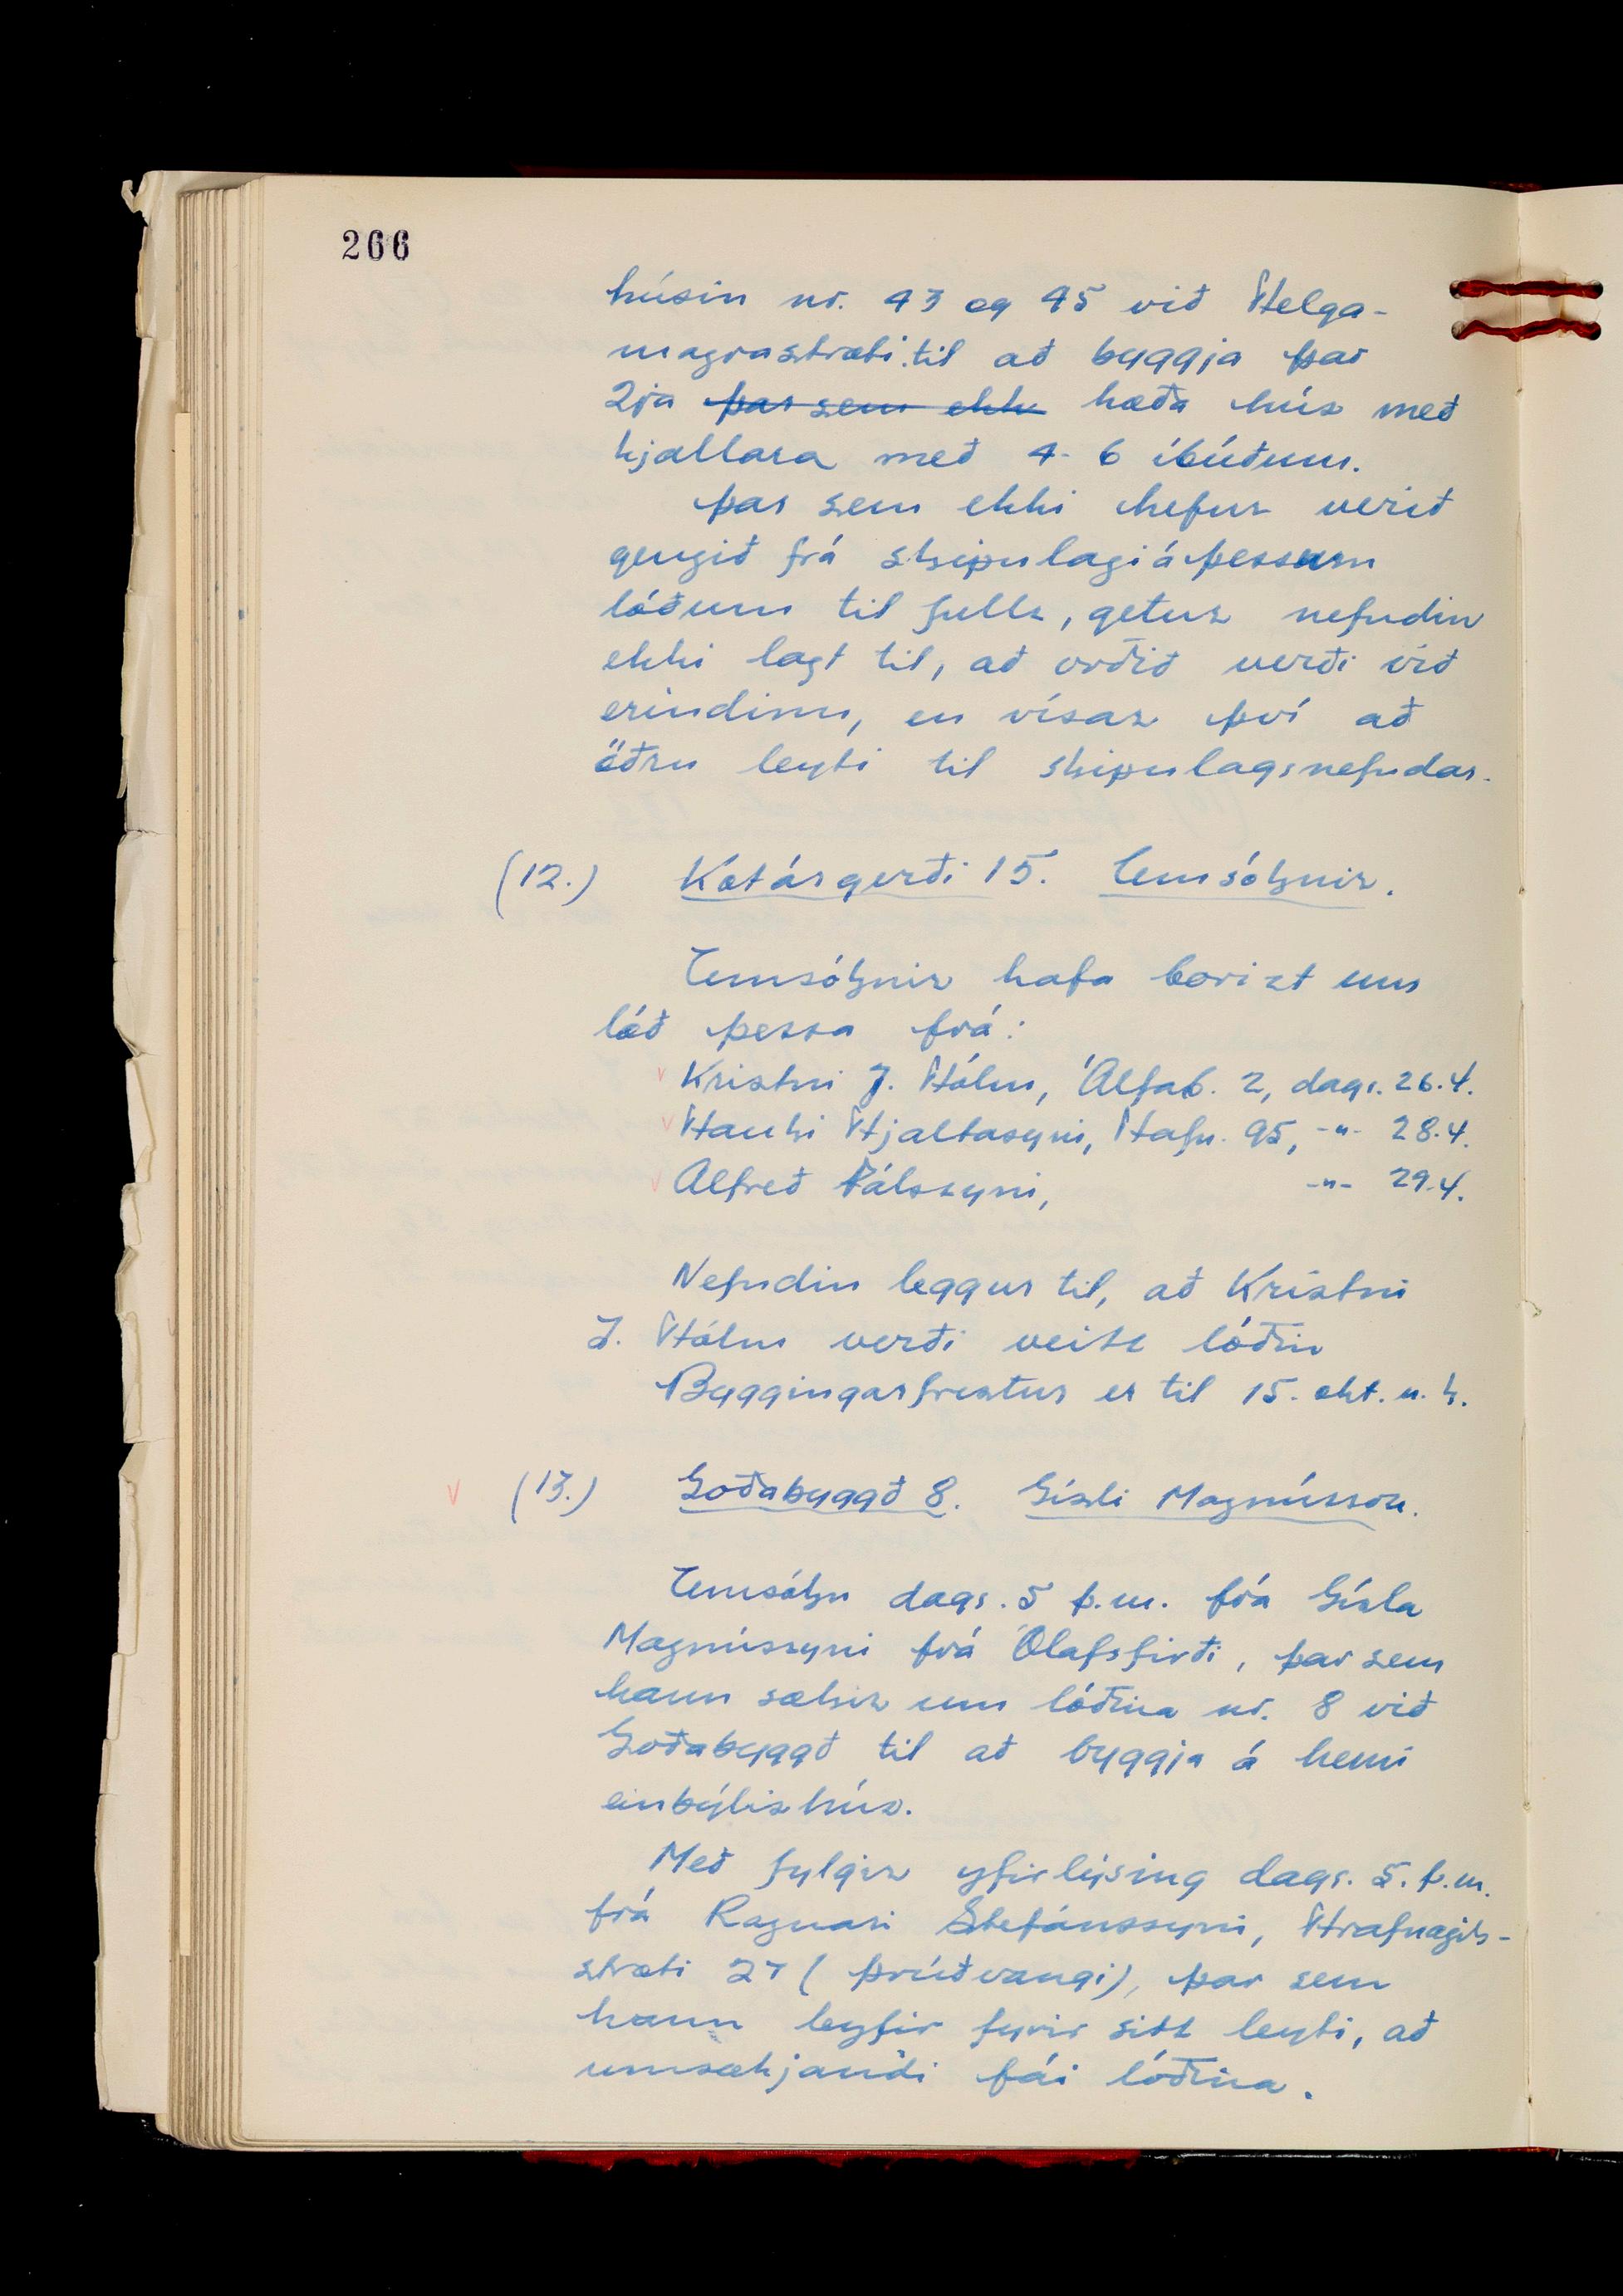 266
húsin nr. 43 og 45 við Helga-
magrastræti til að byggja þar
2ja þar sem ekk hæða hús með
kjallara með 4-6 íbúðum.
Þar sem ekki hefur verið
gengið frá skipulagi á þessum
lóðum til fulls, getur nefndin
ekki lagt til, að orðið verði við
erindinu, en vísar því að
öðru leyti til skipulagsnefndar.
(12.) Kotárgerði 15. Umsóknir.
Umsóknir hafa borizt um
lóð þessa frá:
Kristni J. Hólm, Álfab. 2, dags. 26.4.
Hauki Hjaltasyni, Hafn. 95, -"- 28.4.
Alfreð Pálssyni, -"- 29.4.
Nefndin leggur til, að Kristni
J. Hólm verði veitt lóðin
Byggingarfrestur er til 15. okt. n.k.
(13.) Goðabyggð 8. Gísli Magnússon.
Umsókn dags. 5 þ.m. frá Gísla
Magnússyni frá Ólafsfirði, þar sem
hann sækir um lóðina nr. 8 við
Goðabyggð til að byggja á henni
einbýlishús.
Með fylgir yfirlýsing dags. 5. þ.m.
frá Ragnari Stefánssyni, Hrafnagils-
stræti 27 (Þrúðvangi), þar sem
hann leyfir fyrir sitt leyti, að
umsækjandi fái lóðina.